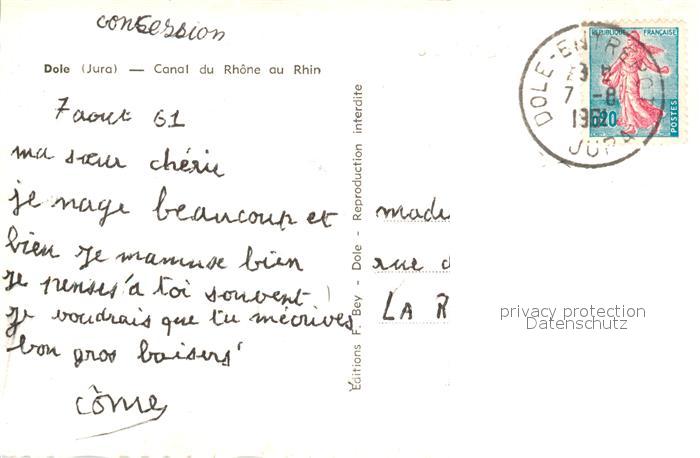 conession
Dole (Jura) — Canal du Rhône au Rhin
7 aout 61
ma sœur chérie
je nage beaucoup et
bien je mamuse bien
je penses a toi souvent
je voudrais que tu mécrives
bon gros baisers
côme
Editions F. Bey - Dole - Reproduction interdite
rue d
LA R
privacy protection
Datenschutz
REPUBLIQUE FRANÇAISE
0,20
POSTES
DOLE-ENTREPOT
7 -8
1961
JURA